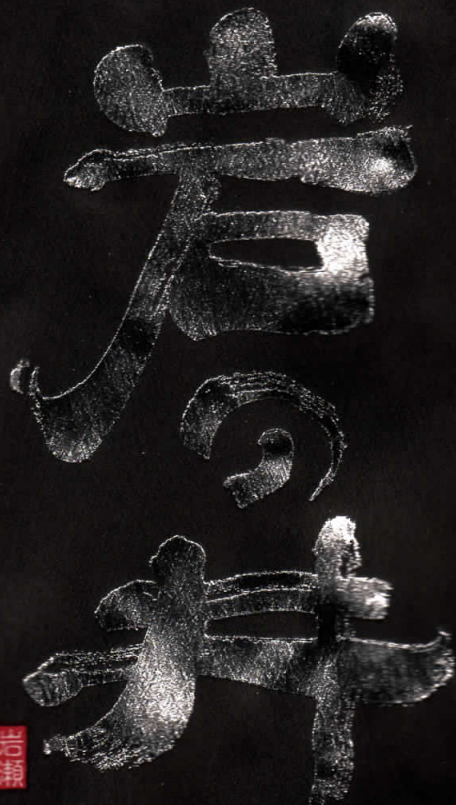 岩の井
岩瀬